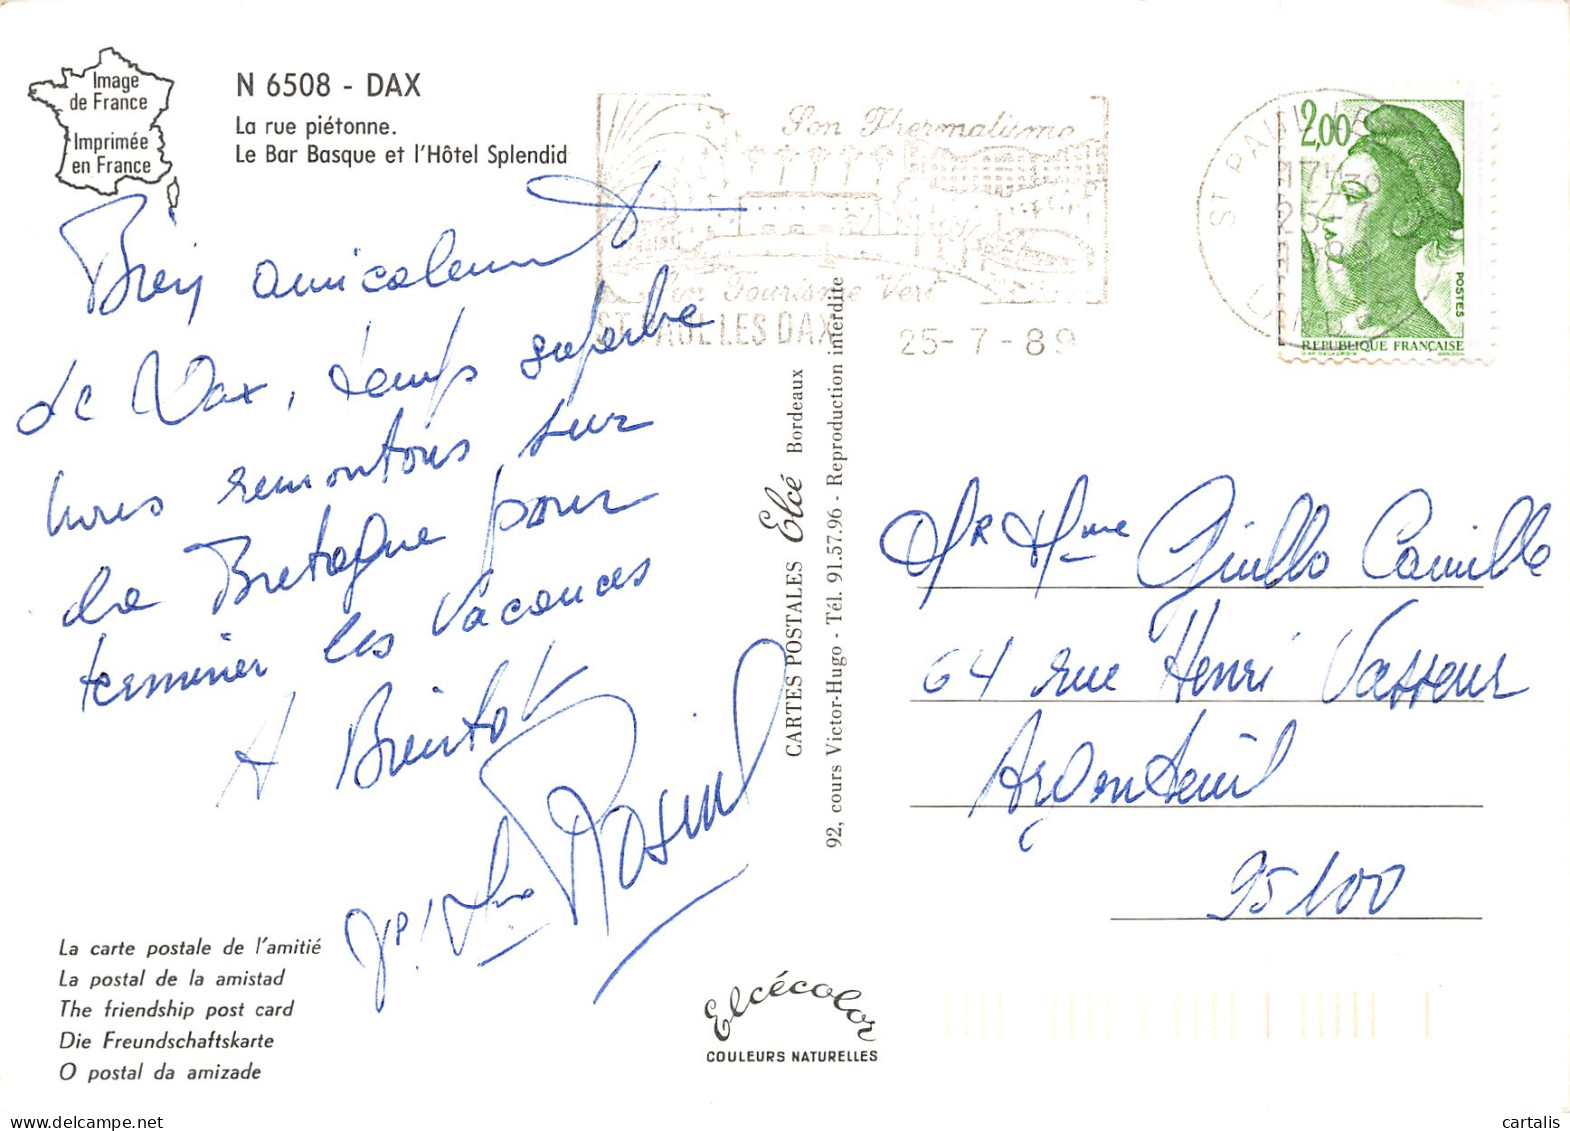 Image
de France
Imprimée
en France
N 6508 - DAX
La rue piétonne.
Le Bar Basque et l'Hôtel Splendid
Son Thermalisme
Son Tourisme Vert
ST PAUL LES DAX
25-7-89
ST PAUL LES
17H30
25-7
LANDES
2,00
POSTES
REPUBLIQUE FRANÇAISE
D'AP. DELACROIX GANDON
Bien amicalement
de Dax, temps superbe
nous remontons sur
la Bretagne pour
terminer les vacances
A Bientot
CARTES POSTALES Elcé Bordeaux
92, cours Victor-Hugo - Tél. 91.57.96 - Reproduction interdite
Mr Mme Guillo Camille
64 rue Henri Vasseur
Argenteuil
95100
La carte postale de l'amitié
La postal de la amistad
The friendship post card
Die Freundschaftskarte
O postal da amizade
Elcécolor
COULEURS NATURELLES
cartalis